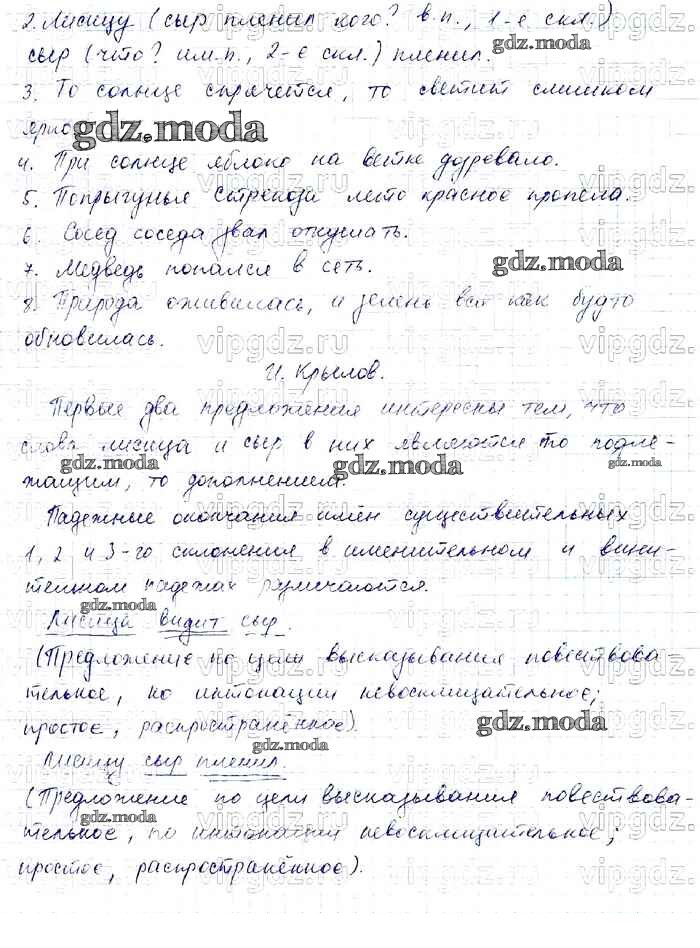 2. Лисицу (сыр пленил кого? в.п., 1-е скл.)
gdz.moda
сыр (что? им.п., 2-е скл.) пленил.
3. То солнце спрячется, то светит слишком
ярко
gdz.moda
4. При солнце яблоко на ветке дозревало.
5. Попрыгунья Стрекоза лето красное пропела.
6. Сосед соседа звал откушать.
7. Медведь попался в сеть.
gdz.moda
8. Природа оживилась, и зелень вся как будто
обновилась.
И. Крылов.
Первые два предложения интересны тем, что
слова лисица и сыр в них являются то подле-
gdz.moda gdz.moda gdz.moda
жащим, то дополнением.
Падежные окончания имён существительных
1, 2 и 3-го склонения в именительном и вини-
тельном падежах различаются.
gdz.moda
Лисица видит сыр.
(Предложение по цели высказывания повествова-
тельное, по интонации невосклицательное;
простое, распространённое).
gdz.moda
gdz.moda
Лисицу сыр пленил.
(Предложение по цели высказывания повествова-
тельное, по интонации невосклицательное;
простое, распространённое).